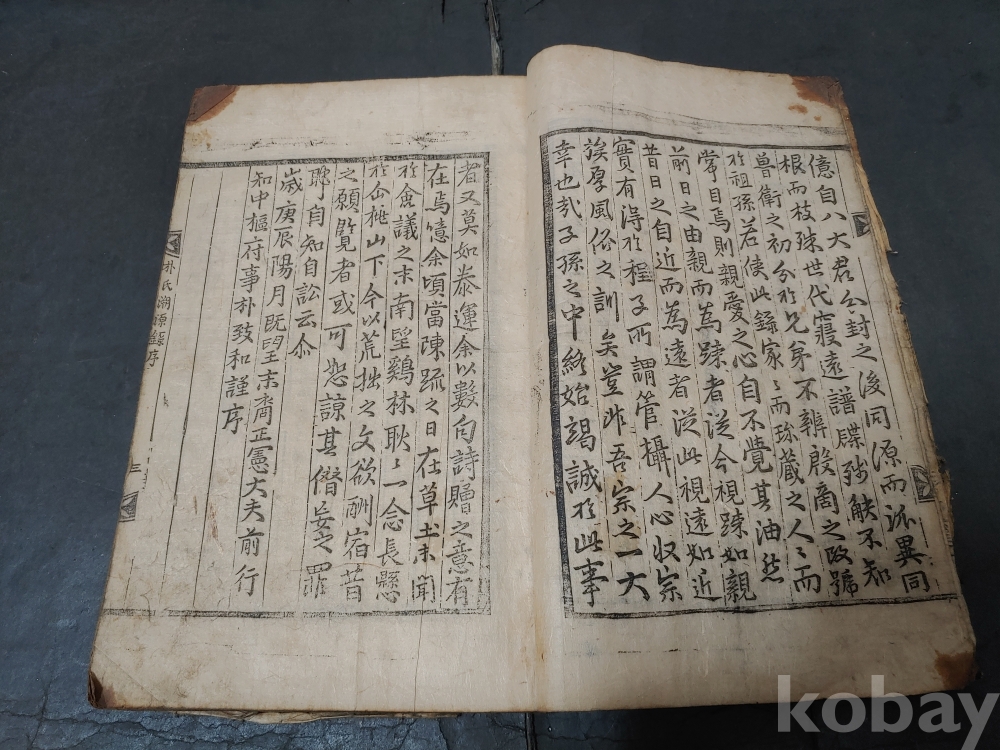 億自八大君分封之後同源而派異同
根而枝殊世代寖遠譜牒殘觖不知
魯衛之初分於兄弟不辨殷商之改號
於祖孫若使此錄家〻而珎蔵之人〻而
常目焉則親愛之心自不覺其油然
前日之由親而為踈者從今視踈如親
昔日之自近而為遠者從此視遠如近
實有得於程子所謂管攝人心収宗
族厚風俗之訓矣豈非吾宗之一大
幸也㢤子孫之中終始竭誠於此事
者又莫如泰運余以數句詩贈之意有
在焉憶余頃當陳䟽之日在草土未聞
於僉議之末南望鷄林耿〻一念長懸
於山下今以荒拙之文欲酬宿昔
之願覧者或可恕諒其僭妄之罪
聊自知自訟云尒
歲庚辰陽月既望末裔正憲大夫前行
知中樞府事朴致和謹序
朴氏溯源錄序
三
kobay